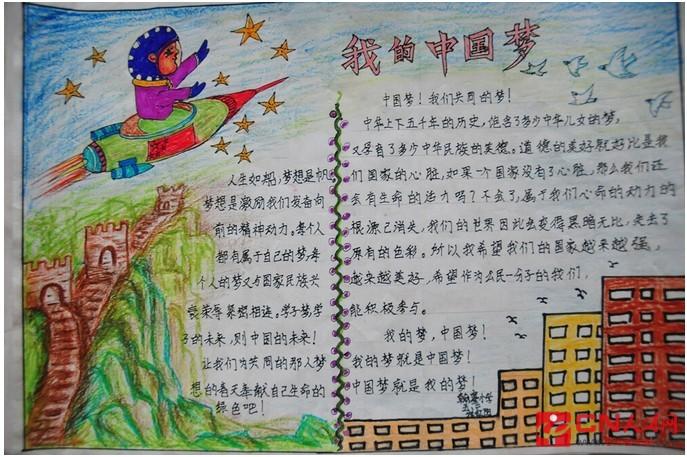 我的中国梦
人生如船，梦想是帆
梦想是激励我们发奋向
前的精神动力。每个人
都有属于自己的梦，每
个人的梦又与国家民族兴
衰荣辱紧密相连。学子有学
子的未来，则中国的未来！
让我们为共同的那人梦
想的春天奉献自己生命的
绿色吧！
中国梦！我们共同的梦！
中华上下五千年的历史，饱含了多少中华儿女的梦，
又孕育了多少中华民族的美德。道德的美好就好比是我
们国家的心脏，如果一个国家没有了心脏，那么我们还
会有生命的活力吗？不会了，属于我们心命的动力的
根源已消失，我们的世界因此会变得黑暗无比，失去了
原有的色彩。所以我希望我们的国家越来越强，
越来越美好，希望作为公民一分子的我们，
能积极参与。
我的梦，中国梦！
我的梦就是中国梦！
中国梦就是我的梦！
CN人人网